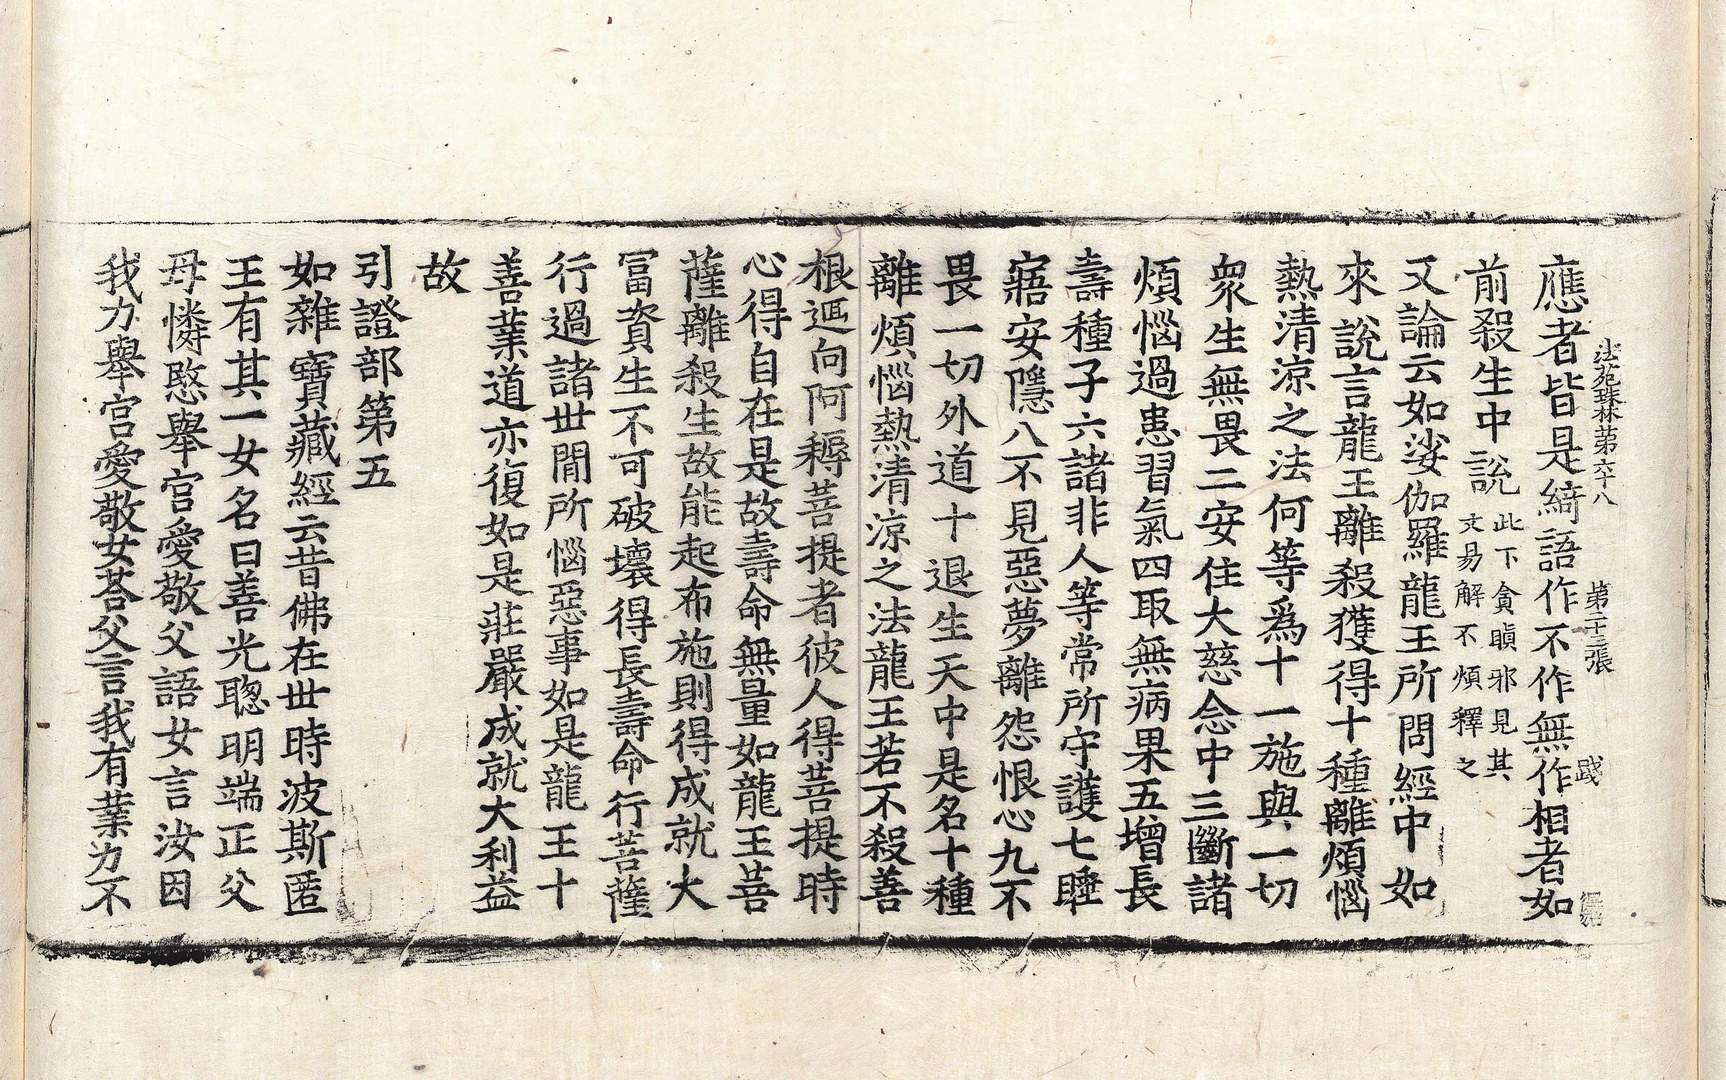 法苑珠林第六十八　第二十三張　踐
應者皆是綺語作不作無作相者如
前殺生中說此下貪瞋邪見其文易解不煩釋之
又論云如娑伽羅龍王所問經中如
來說言龍王離殺獲得十種離煩惱
熱清涼之法何等爲十一施與一切
衆生無畏二安住大慈念中三斷諸
煩惱過患習氣四取無病果五增長
壽種子六諸非人等常所守護七睡
寤安隱八不見惡夢離怨恨心九不
畏一切外道十退生天中是名十種
離煩惱熱清涼之法龍王若不殺善
根迴向阿耨菩提者彼人得菩提時
心得自在是故壽命無量如龍王菩
薩離殺生故能起布施則得成就大
冨資生不可破壞得長壽命行菩薩
行過諸世閒所惱惡事如是龍王十
善業道亦復如是莊嚴成就大利益
故
引證部第五
如雜寶藏經云昔佛在世時波斯匿
王有其一女名曰善光聰明端正父
母憐愍舉宮愛敬父語女言汝因
我力舉宮愛敬女荅父言我有業力不